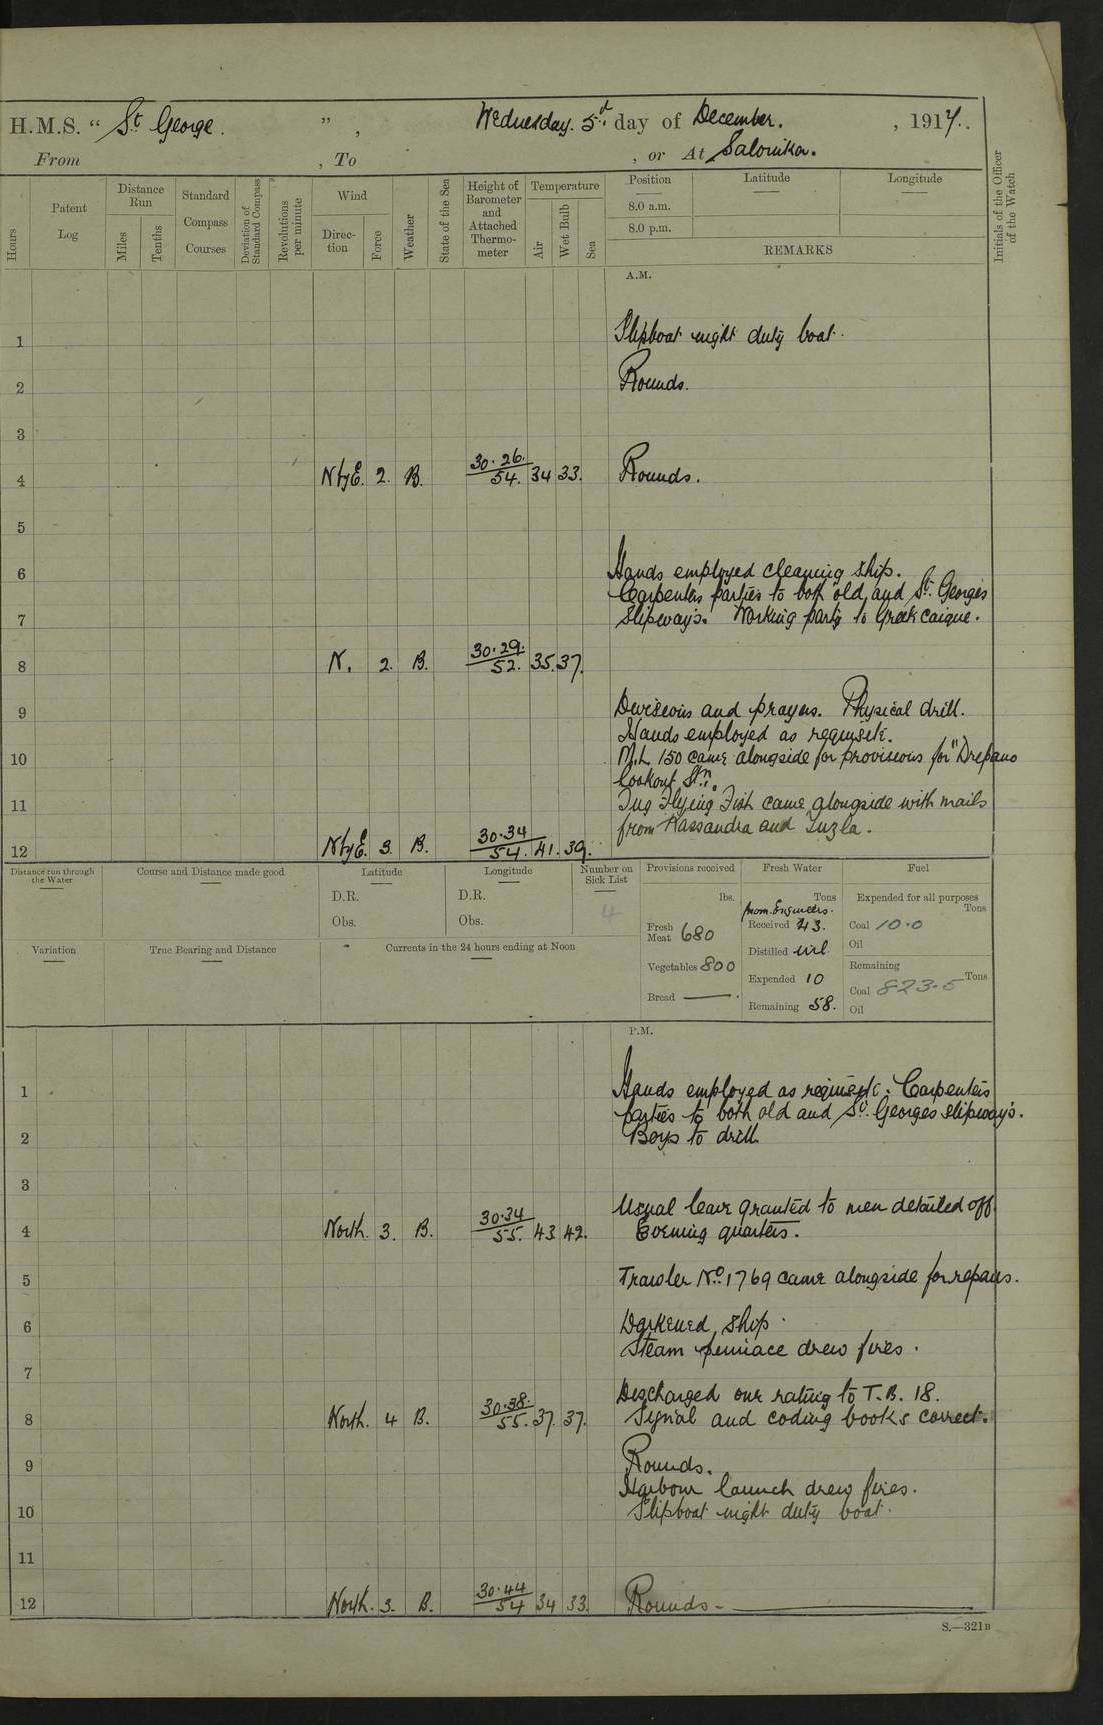 H.M.S. “ St George. ” , Wednesday. 5th day of December. , 1917.
From , To , or At Salonika.
Hours
Patent Log
Distance Run
Miles
Tenths
Standard Compass Courses
Deviation of Standard Compass
Revolutions per minute
Wind
Direction
Force
Weather
State of the Sea
Height of Barometer and Attached Thermometer
Temperature
Air
Wet Bulb
Sea
Position
8.0 a.m.
8.0 p.m.
Latitude
Longitude
REMARKS
Initials of the Officer of the Watch
A.M.
1 Slipboat night duty boat.
2 Rounds.
3
4 NbyE. 2. B. 30.26. 54. 34 33. Rounds.
5
6 Hands employed cleaning ship.
Carpenters parties to both old and St. Georges
7 Slipways. Working party to Greek caique.
8 N. 2. B. 30.29. 52. 35. 37.
9 Divisions and prayers. Physical drill.
Hands employed as requisite.
10 M.L. 150 came alongside for provisions for "Drepano
lookout Stn.
11 Tug Flying Fish came alongside with mails
from Kassandra and Tuzla.
12 NbyE. 3. B. 30.34 54. 41. 39.
Distance run through the Water
Course and Distance made good
Latitude
D.R.
Obs.
Longitude
D.R.
Obs.
Number on Sick List
4
Provisions received
lbs.
Fresh Meat 680
Vegetables 800
Bread —
Fresh Water
Tons
from Engineers.
Received 43.
Distilled nil
Expended 10
Remaining 58.
Fuel
Expended for all purposes
Tons
Coal 10.0
Oil
Remaining
Tons
Coal 823.5
Oil
Variation
True Bearing and Distance
Currents in the 24 hours ending at Noon
P.M.
1 Hands employed as requisite. Carpenters
parties to both old and St. Georges slipways.
2 Boys to drill
3
Usual leave granted to men detailed off.
4 North. 3. B. 30.34 55. 43 42. Evening quarters.
5 Trawler No. 1769 came alongside for repairs.
6 Darkened ship.
Steam pinnace drew fires.
7
Discharged one rating to T.B. 18.
8 North. 4 B. 30.38. 55. 37. 37. Signal and coding books correct.
9 Rounds.
Harbour launch drew fires.
10 Slipboat night duty boat.
11
12 North. 3. B. 30.44 54 34 33. Rounds -
S.—321B